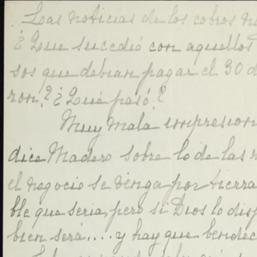 Las noticias de los cobros
¿Que sucedió con aquellos
sos que debian pagar el 30 d
ron? ¿Qué pasó?
Muy mala impresion
dice Madero sobre lo de las
el negocio se venga por tierra
ble que seria, pero si Dios lo disp
bien será.... y hay que bendec